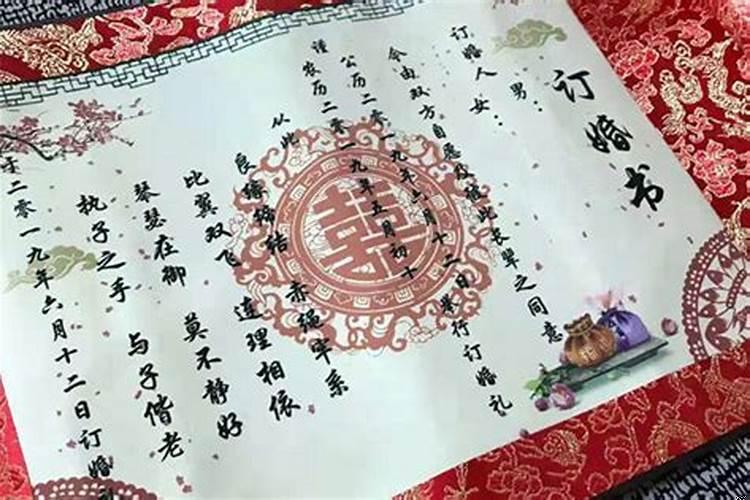 订婚书
男：
订婚人
女：
今由双方自愿及征此长辈之同意
谨
公历二零一九年六月十二日举行订婚礼
农历二零一九年五月初十
从此
良缘缔结 赤绳牢系
比翼双飞 连理相依
琴瑟在御 莫不静好
执子之手 与子偕老
于二零一九年六月十二日订婚